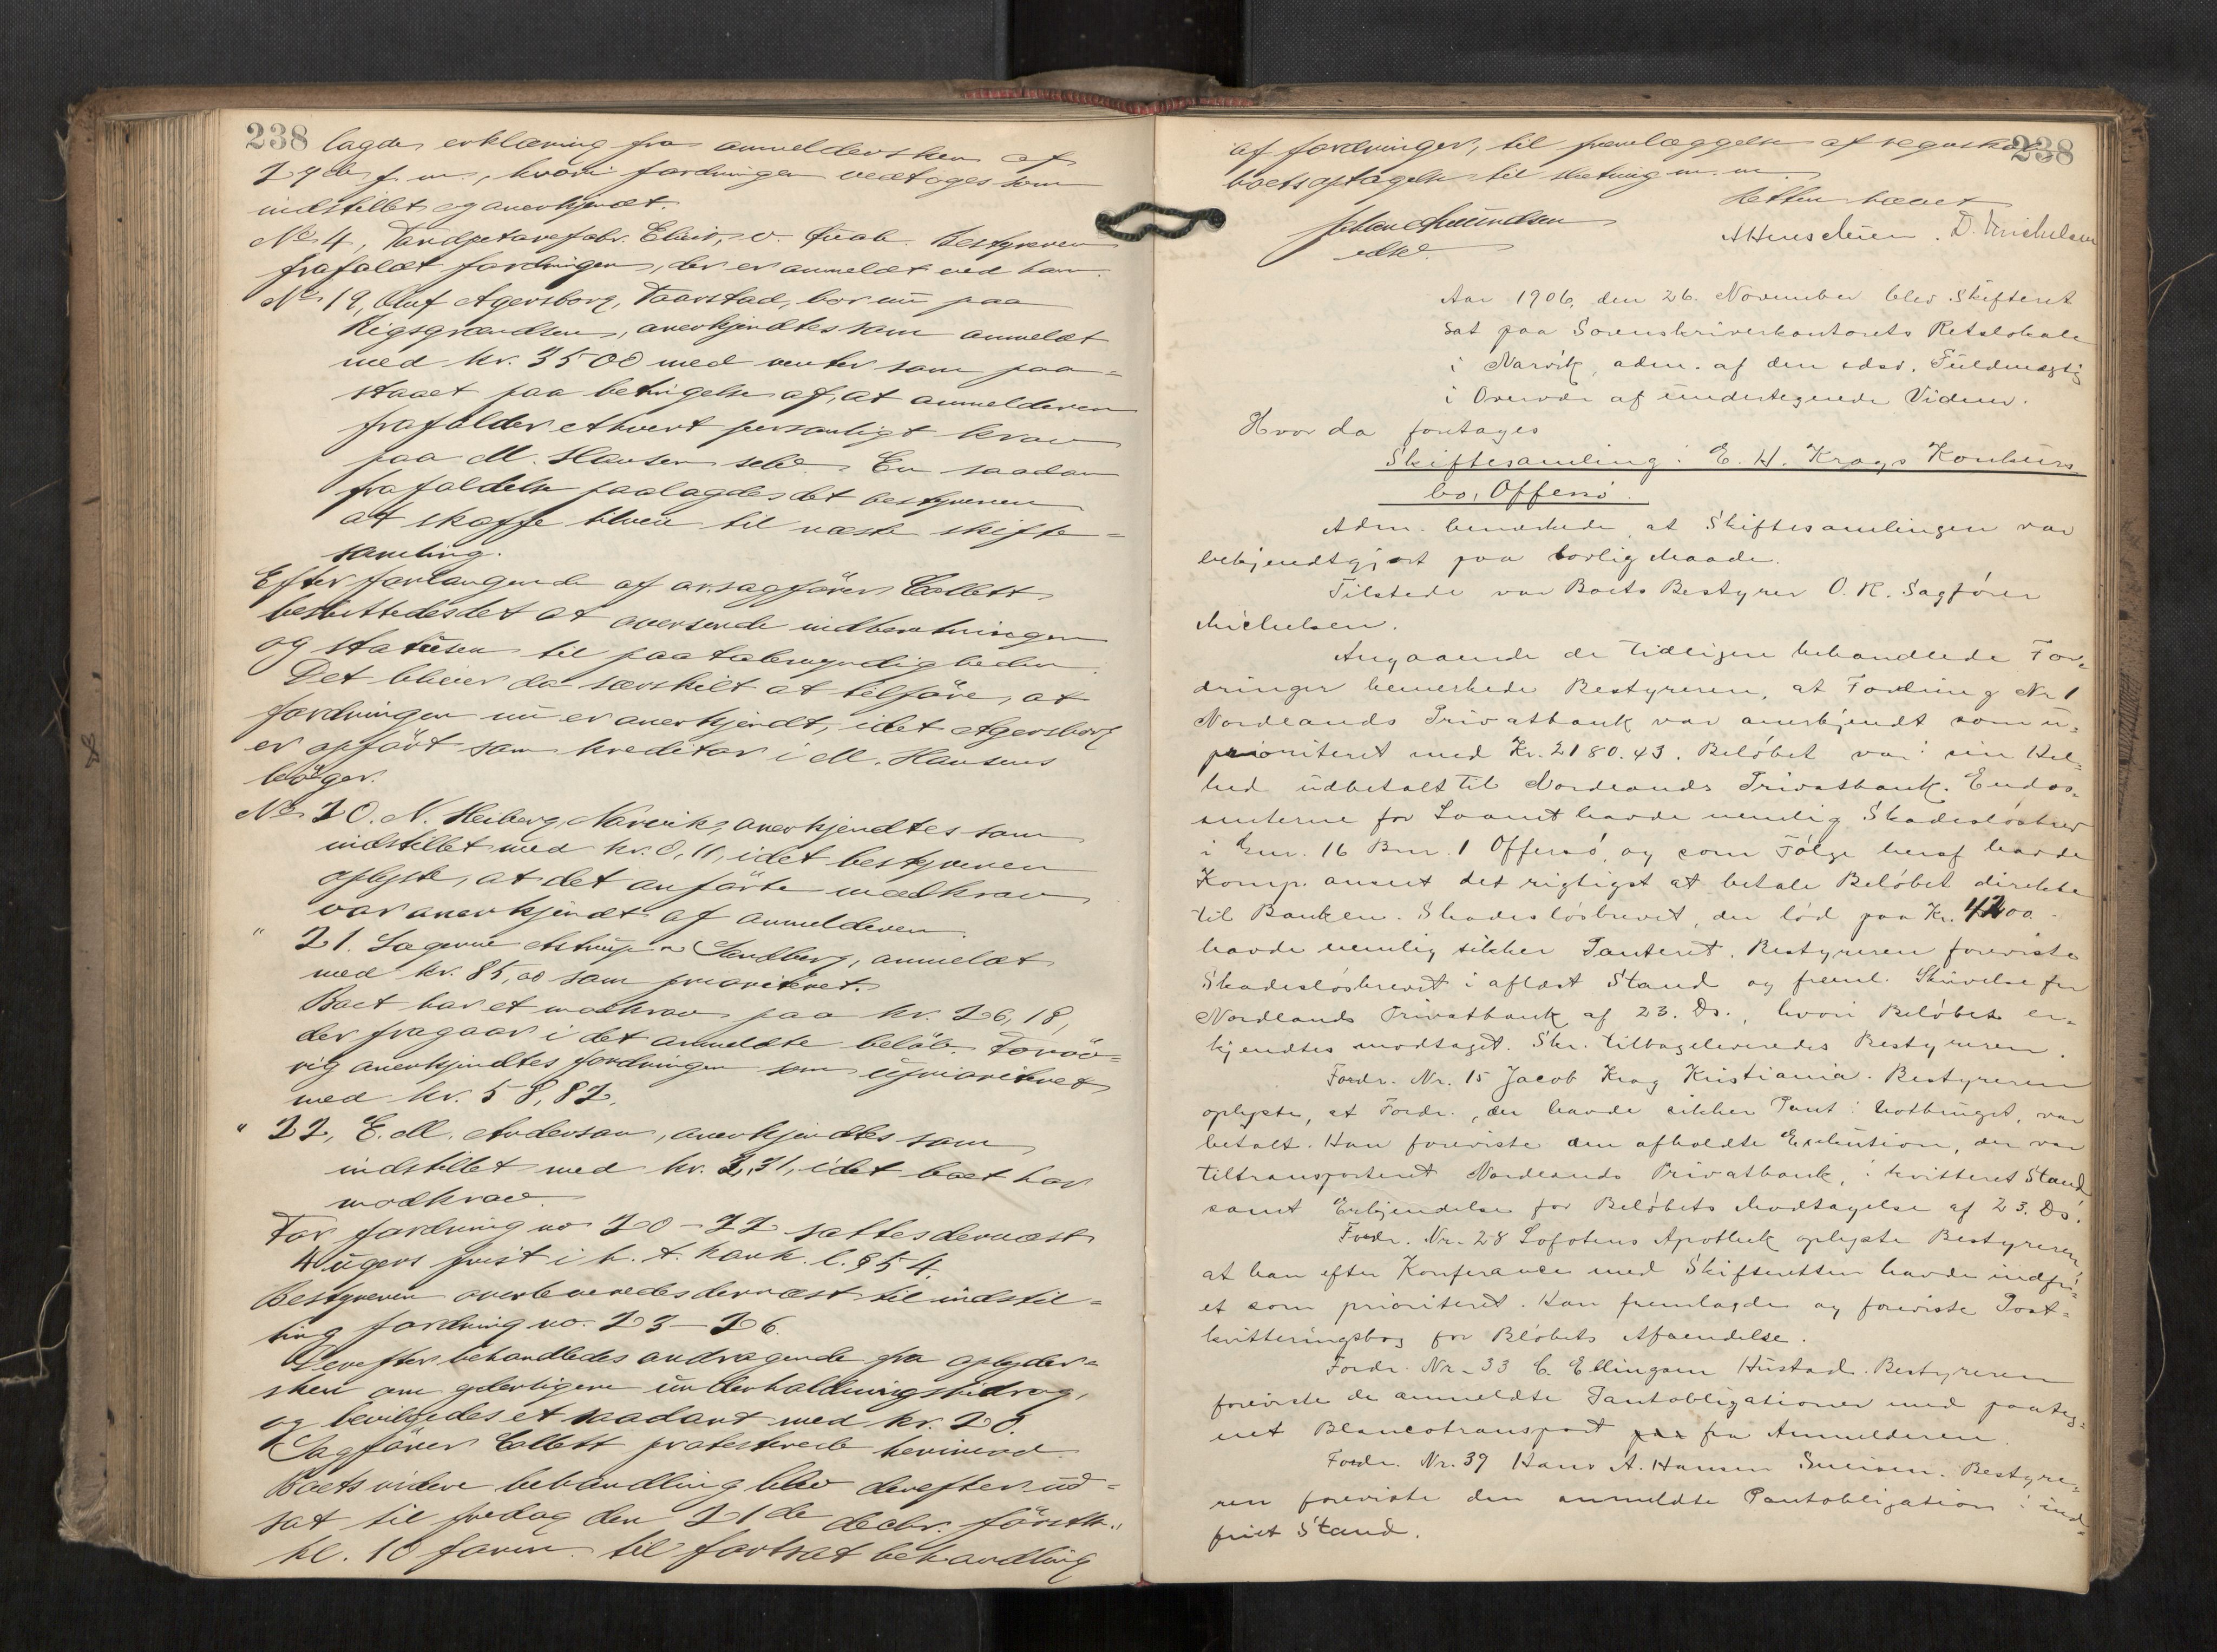 238 lagdes erklæring fra anmeldersken af
29de f. m., hvori fordringen vedtoges som
indstillet og anerkjendt.
No 4, Bestyreren
frafaldt fordringen, der er anmeldt ved ham.
No 19, Oluf Agersborg, Taarstad, bor nu paa
Rigsgrændsen, anerkjendtes som anmeldt
med kr. 3500 med renter som paa-
staaet paa betingelse af, at anmelderen
frafalder ethvert personligt krav
paa M. Hansen selv. En saadan
frafaldelse paalagdes det bestyreren
at skaffe tilveie til næste skifte-
samling.
Efter forlangende af o.r.sagfører Collett
besluttedes det at oversende indberetningen
og statusen til paatalemyndigheden.
Det bliver da særskilt at tilføre, at
fordringen nu er anerkjendt, idet Agersborg
er opført som kreditor i M. Hansens
bøger.
No 20. N. Heiberg, Narvik, anerkjendtes som
indstillet med kr. 0,11, idet bestyreren
oplyste, at det anførte modkrav
var anerkjendt af anmelderen.
" 21. Sagerne Astrup & Sandberg, anmeldt
med kr. 85,00 som prioriteret.
Boet har et modkrav paa kr. 26,18,
der fragaar i det anmeldte beløb. Forøv-
rig anerkjendtes fordringen som uprioriteret
med kr. 58,82.
" 22, E. M. Anderson, anerkjendtes som
indstillet med kr. 2,31, idet boet har
modkrav.
For fordring no 20-22 sattes dernæst
4 ugers frist i h. t. konk. l. § 54.
Bestyreren overleveredes dernæst til indstil-
ling fordring no. 23-26.
Derefter behandledes andragende fra opbyder-
sken om yderligere underholdningsbidrag,
og bevilgedes et saadant med kr. 20.
Sagfører Collett protesterede herimod.
Boets videre behandling blev derefter ud-
sat til fredag den 21de decbr. førstk.,
kl. 10 form. til fortsat behandling
af fordringer, til fremlæggelse af regnskab 238
boets optagelse til slutning m. m.
Retten hævet
Johan Amundsen D. Michelsen
edsv.
Aar 1906, den 26. November blev Skifteret
sat paa Sorenskriverkontorets Retslokale
i Narvik, adm. af den edsv. Fuldmægtig
i Overvær af undertegnede Vidner.
Hvor da foretages
Skiftesamling i E. H. Krogs Konkurs
bo, Offersø.
Adm. bemærkede, at Skiftesamlingen var
bekjendtgjort paa lovlig Maade.
Tilstede var Boets Bestyrer O. R. Sagfører
Michelsen.
Angaaende de tidligere behandlede For-
dringer bemerkede Bestyreren, at Fordring Nr 1
Nordlands Privatbank var anerkjendt som u-
prioriteret med Kr. 2180.43. Beløbet var i sin Hel-
hed udbetalt til Nordlands Privatbank. Endos-
senterne for Laanet havde nemlig Skadesløsbrev
i Gnr. 16 Bnr. 1 Offersø, og som Følge heraf havde
Komp. anseet det rigtigst at betale Beløbet direkte
til Banken. Skadesløsbrevet, der lød paa Kr. 4200.-
havde nemlig sikker Panteret. Bestyreren foreviste
Skadesløsbrevet i aflæst Stand og freml. Skrivelse fra
Nordlands Privatbank af 23. Ds., hvori Beløbet er-
kjendtes modtaget. Skr. tilbageleveredes Bestyreren.
Fordr. Nr. 15 Jacob Krog Kristiania. Bestyreren
oplyste, at Fordr., der havde sikker Pant i , var
betalt. Han foreviste den afholdte Exekution, der var
tiltransporteret Nordlands Privatbank, i kvitteret Stand
samt Erkjendelse for Beløbets Modtagelse af 23. Ds.
Fordr. Nr. 28 Lofotens Apothek oplyste Bestyreren
at han efter Konferance med Skifteretten havde indfri-
et som prioriteret. Han fremlagde og foreviste Post-
kvitteringsbog for Bløbets Afsendelse.
Fordr. Nr. 33 C. Ellingsen Hustad. Bestyreren
foreviste de anmeldte Pantobligationer med paateg-
net Blancotransport fra Anmelderen.
Fordr. Nr. 39 Hans A. Hansen . Bestyre-
ren foreviste den anmeldte Pantobligation i ind-
friet Stand.